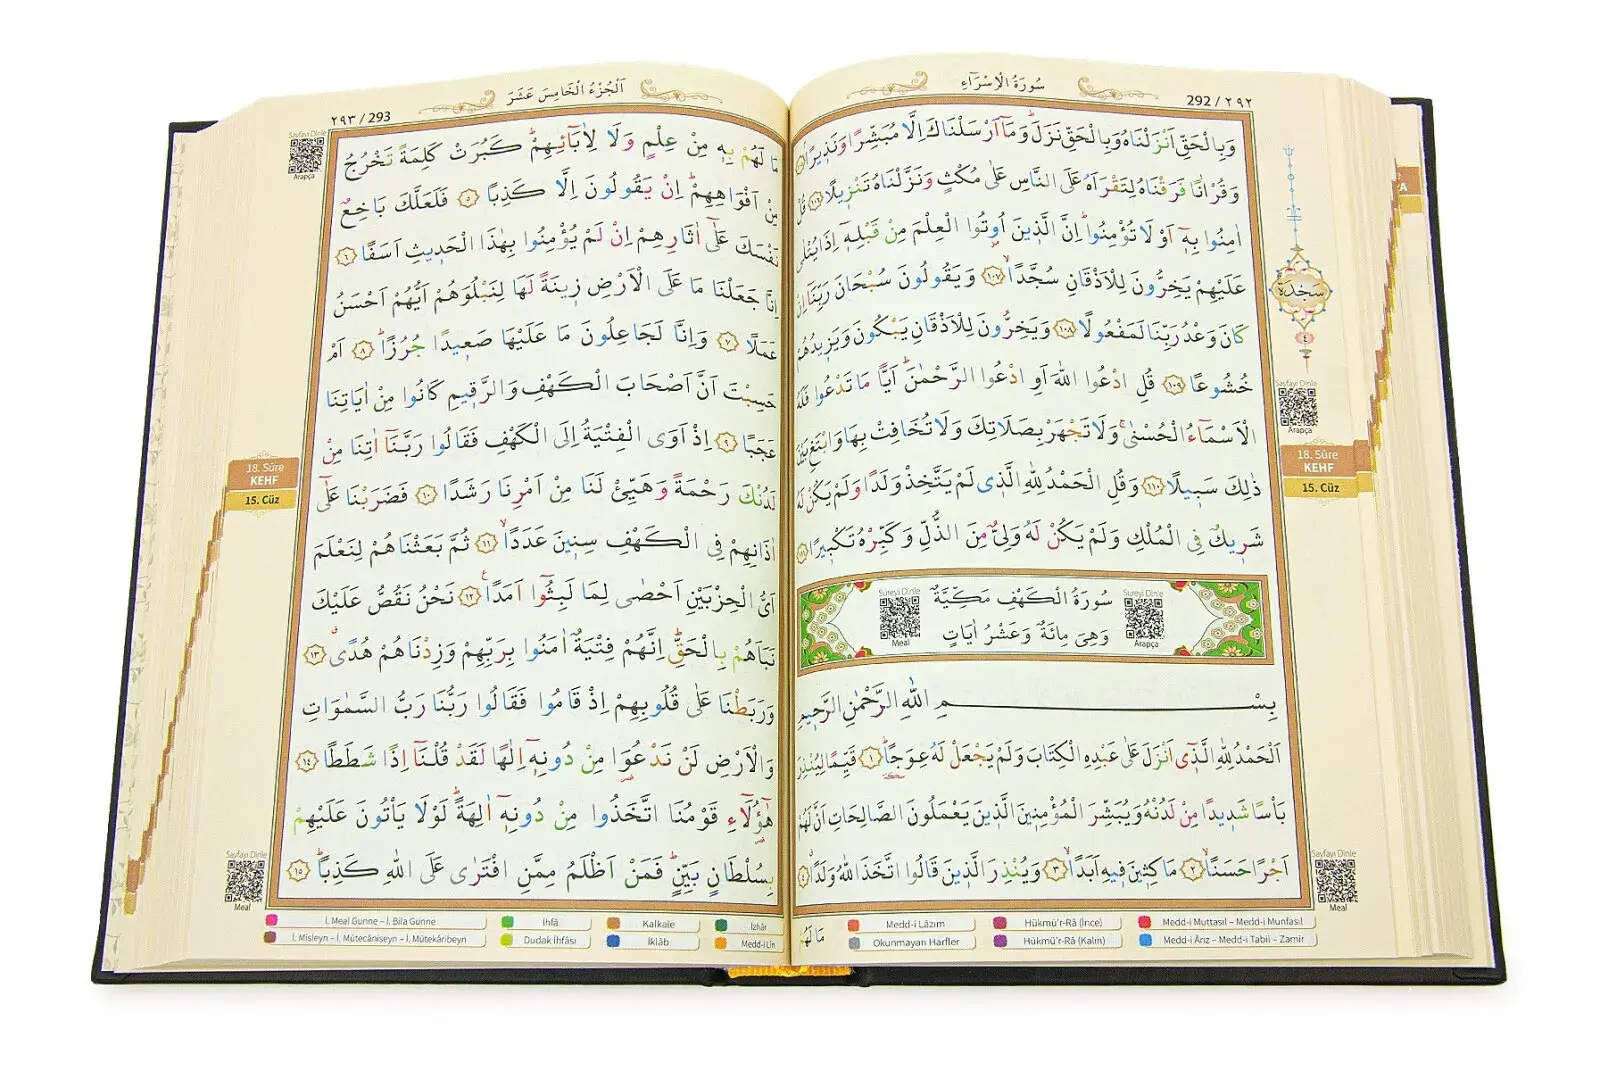 سُورَةُ الْاِسْرَاءِ
292 / ٢٩٢
وَبِالْحَقِّ اَنْزَلْنَاهُ وَبِالْحَقِّ نَزَلَۜ وَمَٓا اَرْسَلْنَاكَ اِلَّا مُبَشِّرًا وَنَذِيرًاۢ ﴿١٠٥﴾
وَقُرْاٰنًا فَرَقْنَاهُ لِتَقْرَاَهُ عَلَى النَّاسِ عَلٰى مُكْثٍ وَنَزَّلْنَاهُ تَنْزِيلًا ﴿١٠٦﴾ قُلْ
اٰمِنُوا بِهٖٓ اَوْ لَا تُؤْمِنُواۜ اِنَّ الَّذٖينَ اُو۫تُوا الْعِلْمَ مِنْ قَبْلِهٖٓ اِذَا يُتْلٰى
عَلَيْهِمْ يَخِرُّونَ لِلْاَذْقَانِ سُجَّدًاۙ ﴿١٠٧﴾ وَيَقُولُونَ سُبْحَانَ رَبِّنَٓا اِنْ
كَانَ وَعْدُ رَبِّنَا لَمَفْعُولًا ﴿١٠٨﴾ وَيَخِرُّونَ لِلْاَذْقَانِ يَبْكُونَ وَيَزٖيدُهُمْ
خُشُوعًا ﴿١٠٩﴾ قُلِ ادْعُوا اللّٰهَ اَوِ ادْعُوا الرَّحْمٰنَۜ اَيًّا مَا تَدْعُوا فَلَهُ
الْاَسْمَٓاءُ الْحُسْنٰىۚ وَلَا تَجْهَرْ بِصَلَاتِكَ وَلَا تُخَافِتْ بِهَا وَابْتَغِ بَيْنَ
ذٰلِكَ سَبٖيلًا ﴿١١٠﴾ وَقُلِ الْحَمْدُ لِلّٰهِ الَّذٖى لَمْ يَتَّخِذْ وَلَدًا وَلَمْ يَكُنْ لَهُ
شَرٖيكٌ فِى الْمُلْكِ وَلَمْ يَكُنْ لَهُ وَلِىٌّ مِنَ الذُّلِّ وَكَبِّرْهُ تَكْبٖيرًا ﴿١١١﴾
سُورَةُ الْكَهْفِ مَكِّيَّةٌ
وَهِىَ مِائَةٌ وَعَشْرُ اٰيَاتٍ
Sureyi Dinle
Meal
Sureyi Dinle
Arapça
بِسْمِ اللّٰهِ الرَّحْمٰنِ الرَّحٖيمِ
اَلْحَمْدُ لِلّٰهِ الَّذٖٓى اَنْزَلَ عَلٰى عَبْدِهِ الْكِتَابَ وَلَمْ يَجْعَلْ لَهُ عِوَجًاۜ ﴿١﴾ قَيِّمًا لِيُنْذِرَ
بَاْسًا شَدٖيدًا مِنْ لَدُنْهُ وَيُبَشِّرَ الْمُؤْمِنٖينَ الَّذٖينَ يَعْمَلُونَ الصَّالِحَاتِ اَنَّ لَهُمْ
اَجْرًا حَسَنًاۙ ﴿٢﴾ مَاكِثٖينَ فٖيهِ اَبَدًاۙ ﴿٣﴾ وَيُنْذِرَ الَّذٖينَ قَالُوا اتَّخَذَ اللّٰهُ وَلَدًا ﴿٤﴾
مَا لَهُمْ
سَجْدَة
٤
Sayfayı Dinle
Arapça
18. Sûre
KEHF
15. Cüz
Sayfayı Dinle
Meal
Medd-i Lâzım
Hükmü'r-Râ (İnce)
Medd-i Muttasıl – Medd-i Munfasıl
Okunmayan Harfler
Hükmü'r-Râ (Kalın)
Medd-i Ârız – Medd-i Tabiî – Zamir
اَلْجُزْءُ الْخَامِسَ عَشَرَ
٢٩٣ / 293
مَا لَهُمْ بِهٖ مِنْ عِلْمٍ وَلَا لِاٰبَٓائِهِمْۜ كَبُرَتْ كَلِمَةً تَخْرُجُ
مِنْ اَفْوَاهِهِمْۜ اِنْ يَقُولُونَ اِلَّا كَذِبًا ﴿٥﴾ فَلَعَلَّكَ بَاخِعٌ
نَفْسَكَ عَلٰٓى اٰثَارِهِمْ اِنْ لَمْ يُؤْمِنُوا بِهٰذَا الْحَدٖيثِ اَسَفًا ﴿٦﴾
اِنَّا جَعَلْنَا مَا عَلَى الْاَرْضِ زٖينَةً لَهَا لِنَبْلُوَهُمْ اَيُّهُمْ اَحْسَنُ
عَمَلًا ﴿٧﴾ وَاِنَّا لَجَاعِلُونَ مَا عَلَيْهَا صَعٖيدًا جُرُزًاۜ ﴿٨﴾ اَمْ
حَسِبْتَ اَنَّ اَصْحَابَ الْكَهْفِ وَالرَّقٖيمِ كَانُوا مِنْ اٰيَاتِنَا
عَجَبًا ﴿٩﴾ اِذْ اَوَى الْفِتْيَةُ اِلَى الْكَهْفِ فَقَالُوا رَبَّنَٓا اٰتِنَا مِنْ
لَدُنْكَ رَحْمَةً وَهَيِّئْ لَنَا مِنْ اَمْرِنَا رَشَدًا ﴿١٠﴾ فَضَرَبْنَا عَلٰٓى
اٰذَانِهِمْ فِى الْكَهْفِ سِنٖينَ عَدَدًاۙ ﴿١١﴾ ثُمَّ بَعَثْنَاهُمْ لِنَعْلَمَ
اَىُّ الْحِزْبَيْنِ اَحْصٰى لِمَا لَبِثُٓوا اَمَدًاۚ ﴿١٢﴾ نَحْنُ نَقُصُّ عَلَيْكَ
نَبَاَهُمْ بِالْحَقِّۜ اِنَّهُمْ فِتْيَةٌ اٰمَنُوا بِرَبِّهِمْ وَزِدْنَاهُمْ هُدًىۗ ﴿١٣﴾
وَرَبَطْنَا عَلٰى قُلُوبِهِمْ اِذْ قَامُوا فَقَالُوا رَبُّنَا رَبُّ السَّمٰوَاتِ
وَالْاَرْضِ لَنْ نَدْعُوَا۬ مِنْ دُونِهٖٓ اِلٰهًا لَقَدْ قُلْنَٓا اِذًا شَطَطًا ﴿١٤﴾
هٰٓؤُ۬لَٓاءِ قَوْمُنَا اتَّخَذُوا مِنْ دُونِهٖٓ اٰلِهَةًۜ لَوْلَا يَاْتُونَ عَلَيْهِمْ
بِسُلْطَانٍ بَيِّنٍۜ فَمَنْ اَظْلَمُ مِمَّنِ افْتَرٰى عَلَى اللّٰهِ كَذِبًاۜ ﴿١٥﴾
Sayfayı Dinle
Arapça
18. Sûre
KEHF
15. Cüz
Sayfayı Dinle
Meal
İ. Meal Gunne – İ. Bila Gunne
İhfâ
Kalkale
İzhâr
İ. Misleyn – İ. Mütecâniseyn – İ. Mütekâribeyn
Dudak İhfâsı
İklâb
Medd-i Lîn